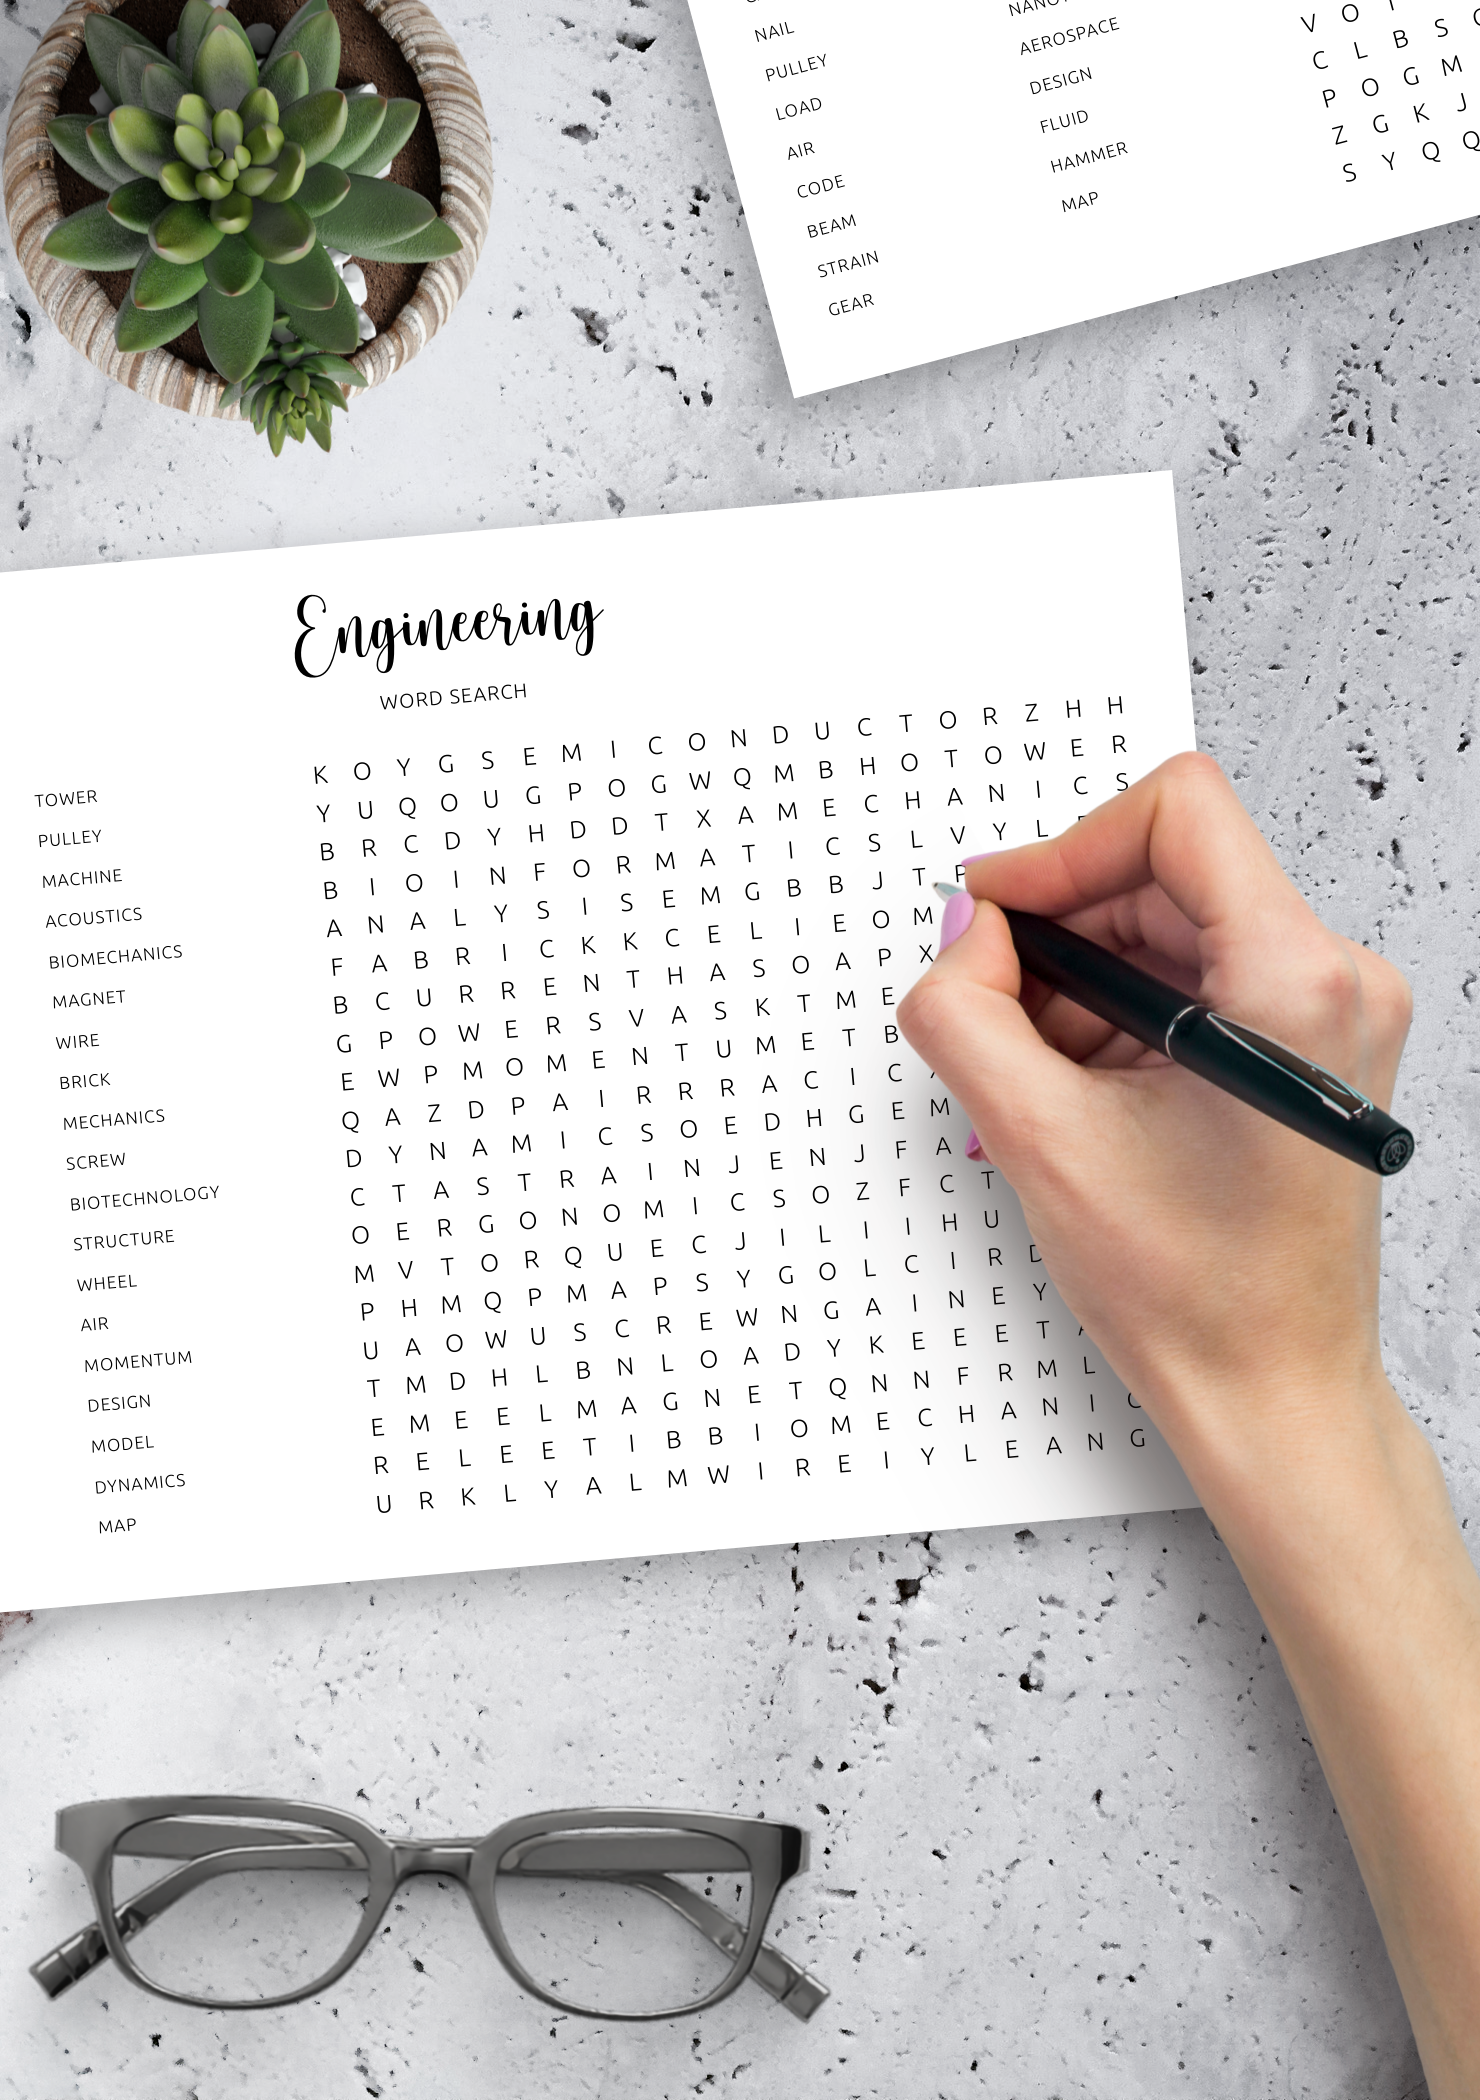 NAIL
PULLEY
LOAD
AIR
CODE
BEAM
STRAIN
GEAR
AEROSPACE
DESIGN
FLUID
HAMMER
MAP
V O
C L B S
P O G M
Z G K J
S Y Q Q
Engineering
WORD SEARCH
TOWER
PULLEY
MACHINE
ACOUSTICS
BIOMECHANICS
MAGNET
WIRE
BRICK
MECHANICS
SCREW
BIOTECHNOLOGY
STRUCTURE
WHEEL
AIR
MOMENTUM
DESIGN
MODEL
DYNAMICS
MAP
K O Y G S E M I C O N D U C T O R Z H H
Y U Q O U G P O G W Q M B H O T O W E R
B R C D Y H D D T X A M E C H A N I C S
B I O I N F O R M A T I C S L V Y L
A N A L Y S I S E M G B B J T P
F A B R I C K K C E L I E O M
B C U R R E N T H A S O A P X
G P O W E R S V A S K T M E
E W P M O M E N T U M E T B
Q A Z D P A I R R R A C I C
D Y N A M I C S O E D H G E M
C T A S T R A I N J E N J F A
O E R G O N O M I C S O Z F C T
M V T O R Q U E C J I L I I H U
P H M Q P M A P S Y G O L C I R D
U A O W U S C R E W N G A I N E Y
T M D H L B N L O A D Y K E E E T
E M E E L M A G N E T Q N N F R M L
R E L E E T I B B I O M E C H A N I C
U R K L Y A L M W I R E I Y L E A N G